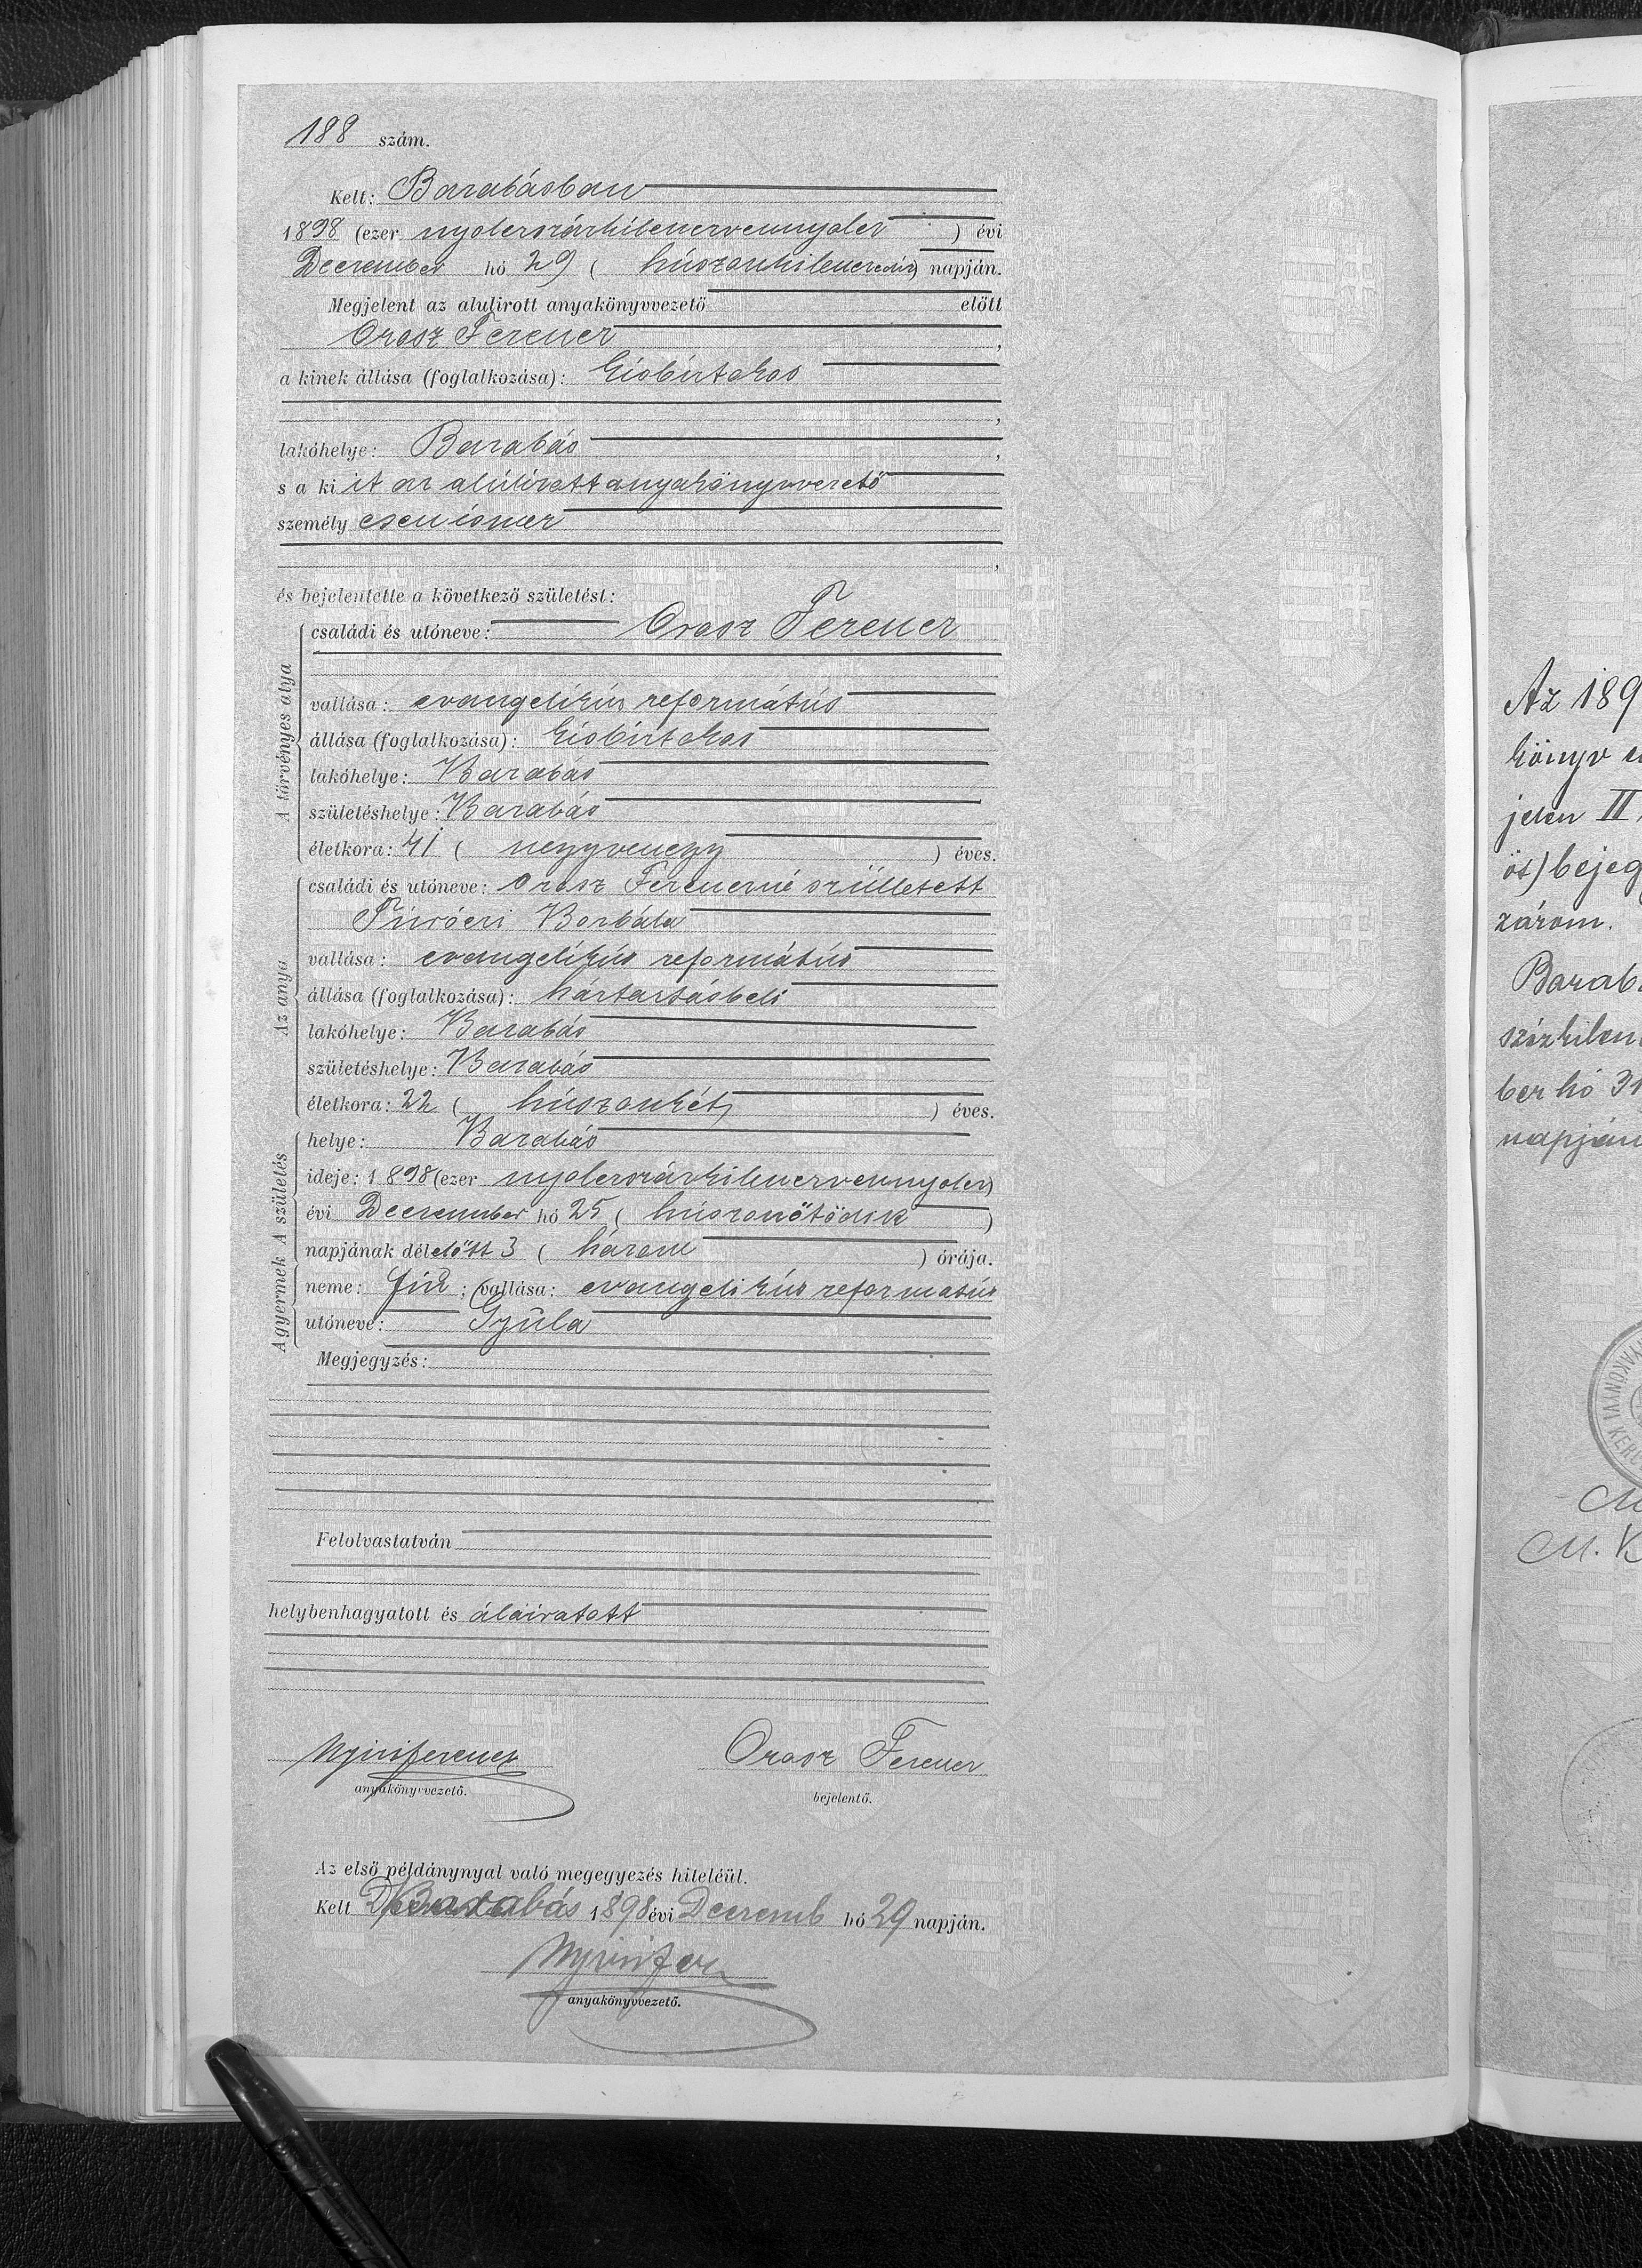 188 szám.
Kelt: Barabásban
1898 (ezer nyolcszázkilencvennyolcz ) évi
December hó 29 ( húszonkilencedik) napján.
Megjelent az alulirott anyakönyvvezető előtt
Orosz Ferencz ,
a kinek állása (foglalkozása): kisbirtokos
,
lakóhelye: Barabás ,
s a ki it az alúlirott anyakönyvvezető
személy esen ismer
,
és bejelentette a következő születést:
A törvényes atya
családi és utóneve: Orosz Ferencz
vallása: evangelikús református
állása (foglalkozása): kisbirtokos
lakóhelye: Barabás
születéshelye: Barabás
életkora: 41 ( negyvenegy ) éves.
Az anya
családi és utóneve: Orosz Ferenczné szülletett
Borbála
vallása: evangelikús református
állása (foglalkozása): háztartásbeli
lakóhelye: Barabás
születéshelye: Barabás
életkora: 22 ( húszonkét ) éves.
A születés
helye: Barabás
ideje: 1898 (ezer nyolcszázkilenczvennyolcz)
évi December hó 25 ( húszonötödik )
napjának délelőtt 3 ( három ) órája.
A gyermek
neme: fiú ; vallása: evangelikús református
utóneve: Gyúla
Megjegyzés:
Felolvastatván
helybenhagyatott és áláiratott
Nyiri Ferencz
anyakönyvvezető.
Orosz Ferencz
bejelentő.
Az első példánynyal való megegyezés hiteléül.
Kelt Barabás 1898 évi Deczemb hó 29 napján.
Nyiri Fer
anyakönyvvezető.
Az 189
könyv
jelen II.
ös) bejeg
zárom.
Barab
százkilen
ber hó 31
napján